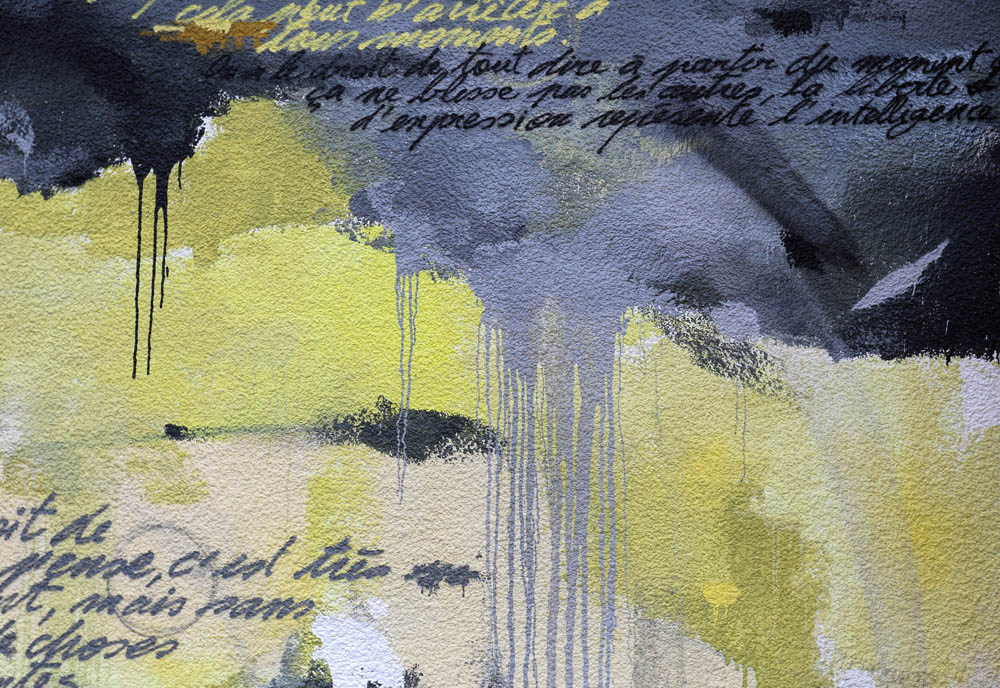 cela peut s'arrêter à
tous moments.
On a le droit de tout dire à partir du moment
ça ne blesse pas les autres, la liberté
d'expression représente l'intelligence
oit de
pense, c'est très
mais sans
choses